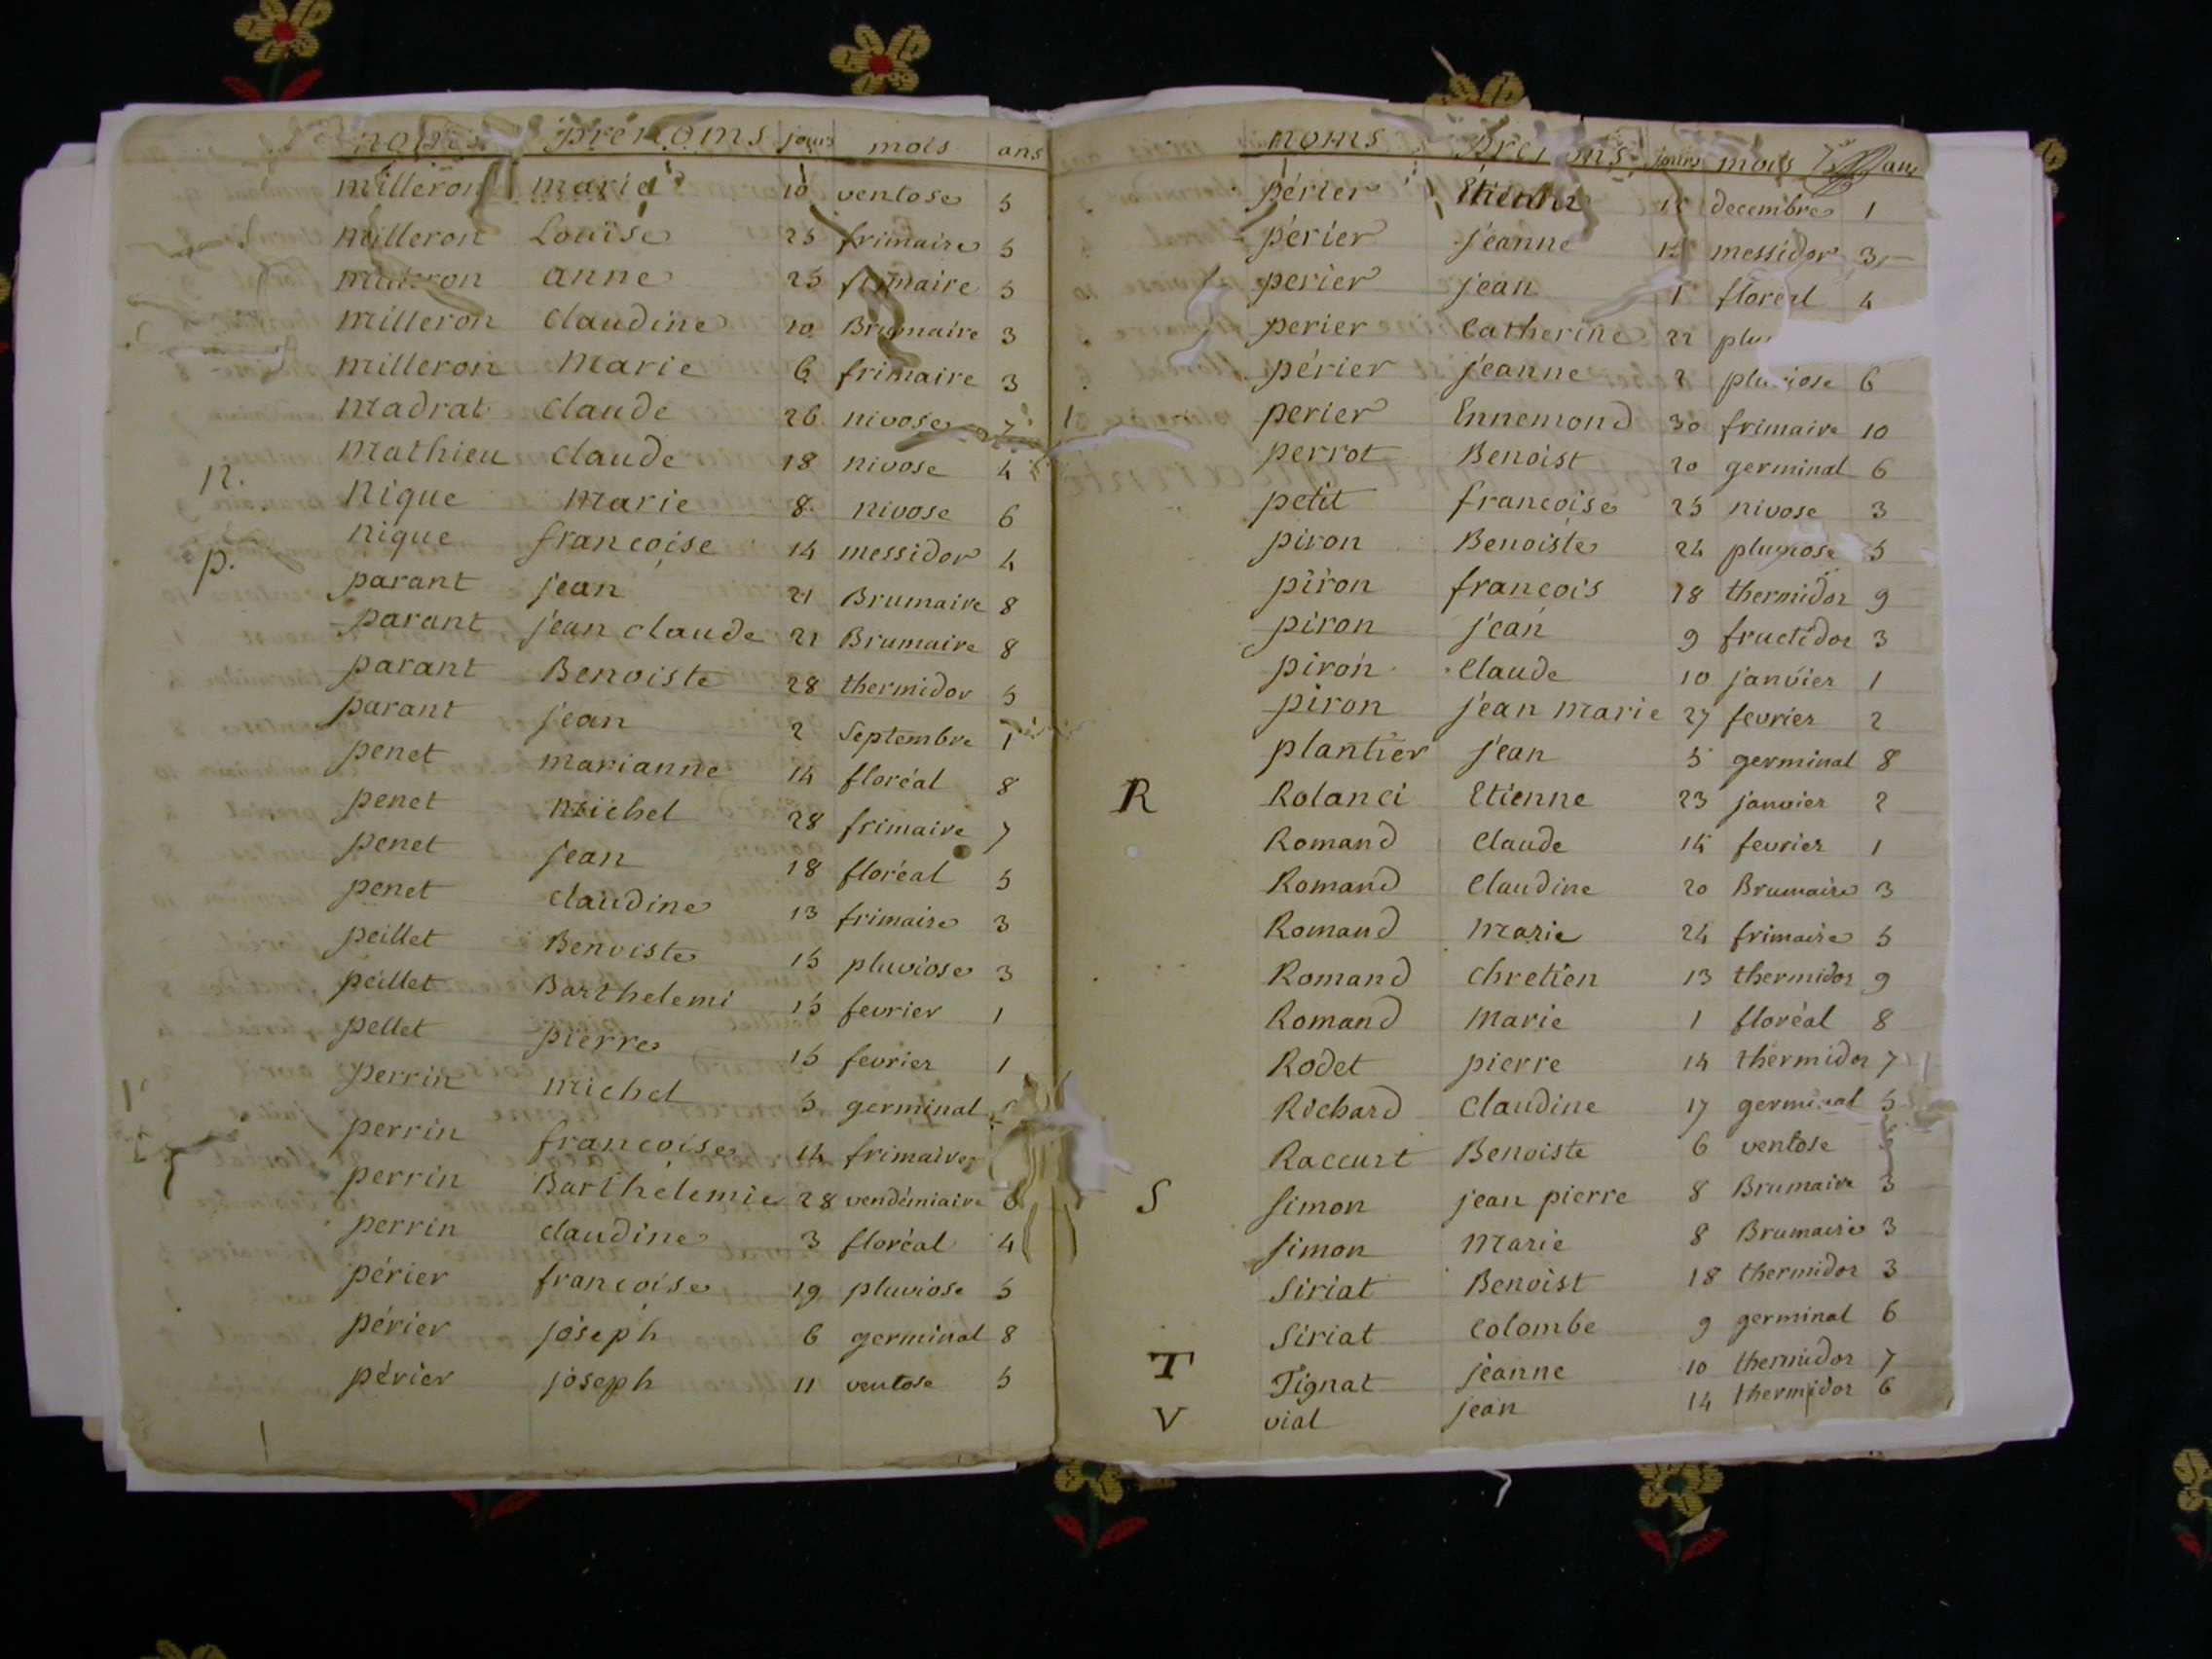 noms prénoms jours mois ans
milleron marie 10 ventose 5
milleron Louise 25 frimaire 5
milleron anne 25 frimaire 5
milleron claudine 10 Brumaire 3
milleron Marie 6 frimaire 3
madrat claude 26 nivose 7
mathieu claude 18 nivose 4
n.
nique marie 8 nivose 6
nique francoise 14 messidor 4
p.
parant jean 21 Brumaire 8
parant jean claude 21 Brumaire 8
parant Benoiste 28 thermidor 5
parant jean 2 Septembre 1
penet marianne 14 floréal 8
penet michel 28 frimaire 7
penet jean 18 floréal 5
penet claudine 13 frimaire 3
peillet Benoiste 15 pluviose 3
peillet Barthelemi 15 fevrier 1
pellet pierre 15 fevrier 1
perrin michel 5 germinal
perrin francoise 14 frimaire
perrin Barthélemie 28 vendémiaire 6
perrin claudine 3 floréal 4
périer francoise 19 pluviose 5
périer joseph 6 germinal 8
périer joseph 11 ventose 5
noms Prenoms jours mois ans
périer Etienne decembre 1
périer jeanne messidor 3
perier jean 1 floreal 4
perier Catherine 22
périer jeanne 2 pluviose 6
perier Ennemond 30 frimaire 10
perrot Benoist 20 germinal 6
petit francoise 25 nivose 3
piron Benoiste 24 pluviose 5
piron francois 18 thermidor 9
piron jean 9 fructidor 3
piron Claude 10 janvier 1
piron jean marie 27 fevrier 2
plantier jean 5 germinal 8
R
Rolanci Etienne 23 janvier 2
Romand Claude 15 fevrier 1
Romand Claudine 20 Brumaire 3
Romand Marie 24 frimaire 5
Romand chretien 13 thermidor 9
Romand Marie 1 floréal 8
Rodet pierre 14 thermidor 7
Richard Claudine 17 germinal 5
Raccurt Benoiste 6 ventose
S
Simon jean pierre 8 Brumaire 3
Simon Marie 8 Brumaire 3
Siriat Benoist 18 thermidor 3
Siriat Colombe 9 germinal 6
T
Tignat jeanne 10 thermidor 7
V
vial jean 14 thermidor 6